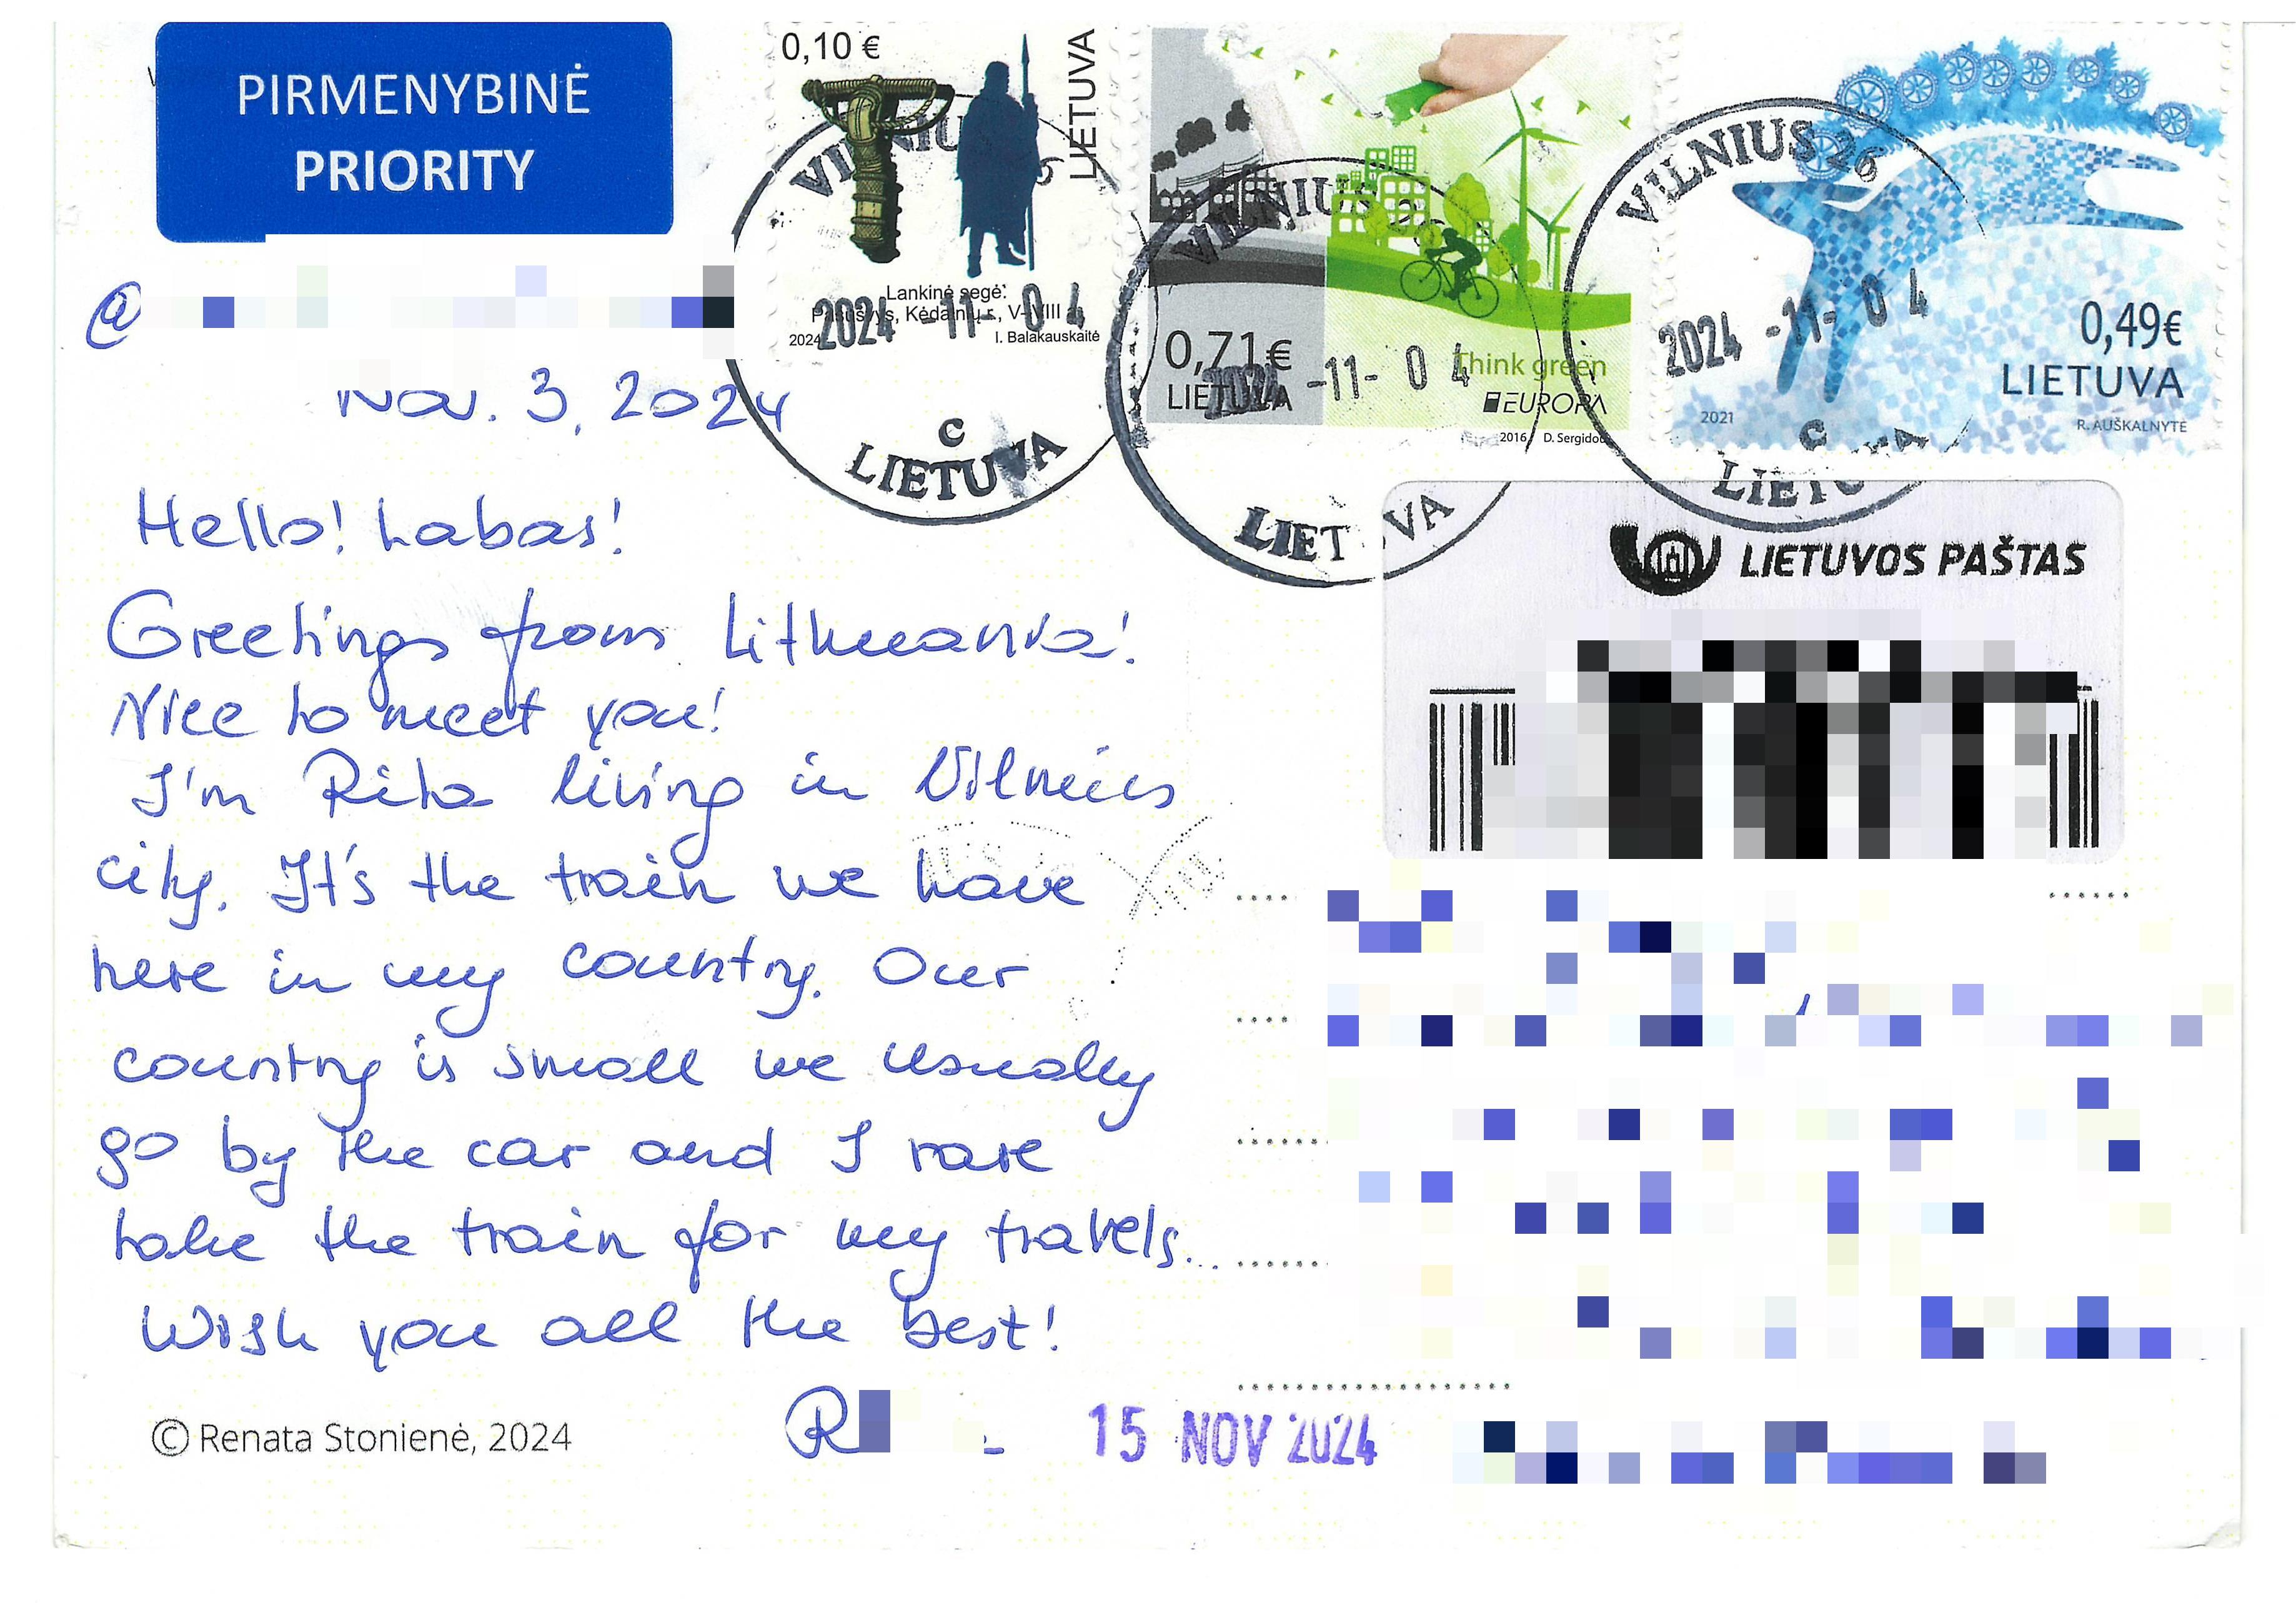 PIRMENYBINĖ
PRIORITY
0,10 €
LIETUVA
Lankinė segė.
Kėdainių r., V–VIII a.
2024
I. Balakauskaitė
VILNIUS
2024 -11- 04
C
LIETUVA
0,71€
LIETUVA
Think green
EUROPA
2016 D. Sergidou
VILNIUS
2024 -11- 04
LIETUVA
0,49€
LIETUVA
2021
R. AUŠKALNYTĖ
VILNIUS 26
2024 -11- 04
C
LIETUVA
@
Nov. 3, 2024
Hello! Labas!
Greetings from Lithuania!
Nice to meet you!
I'm Rita living in Vilnius
city. It's the train we have
here in my country. Our
country is small we usually
go by the car and I rare
take the train for my travels...
Wish you all the best!
R
© Renata Stonienė, 2024
15 NOV 2024
LIETUVOS PAŠTAS